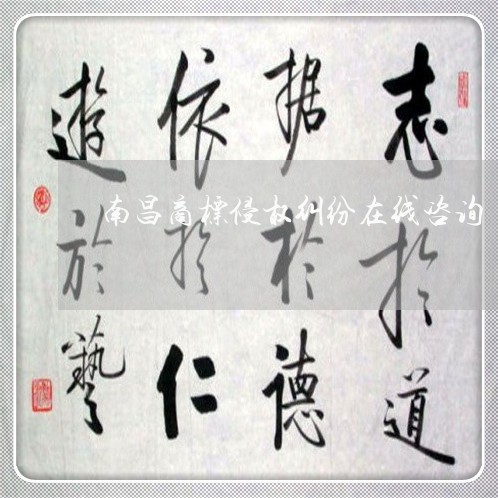 志於道
据於德
依於仁
遊於藝
南昌商标侵权纠纷在线咨询